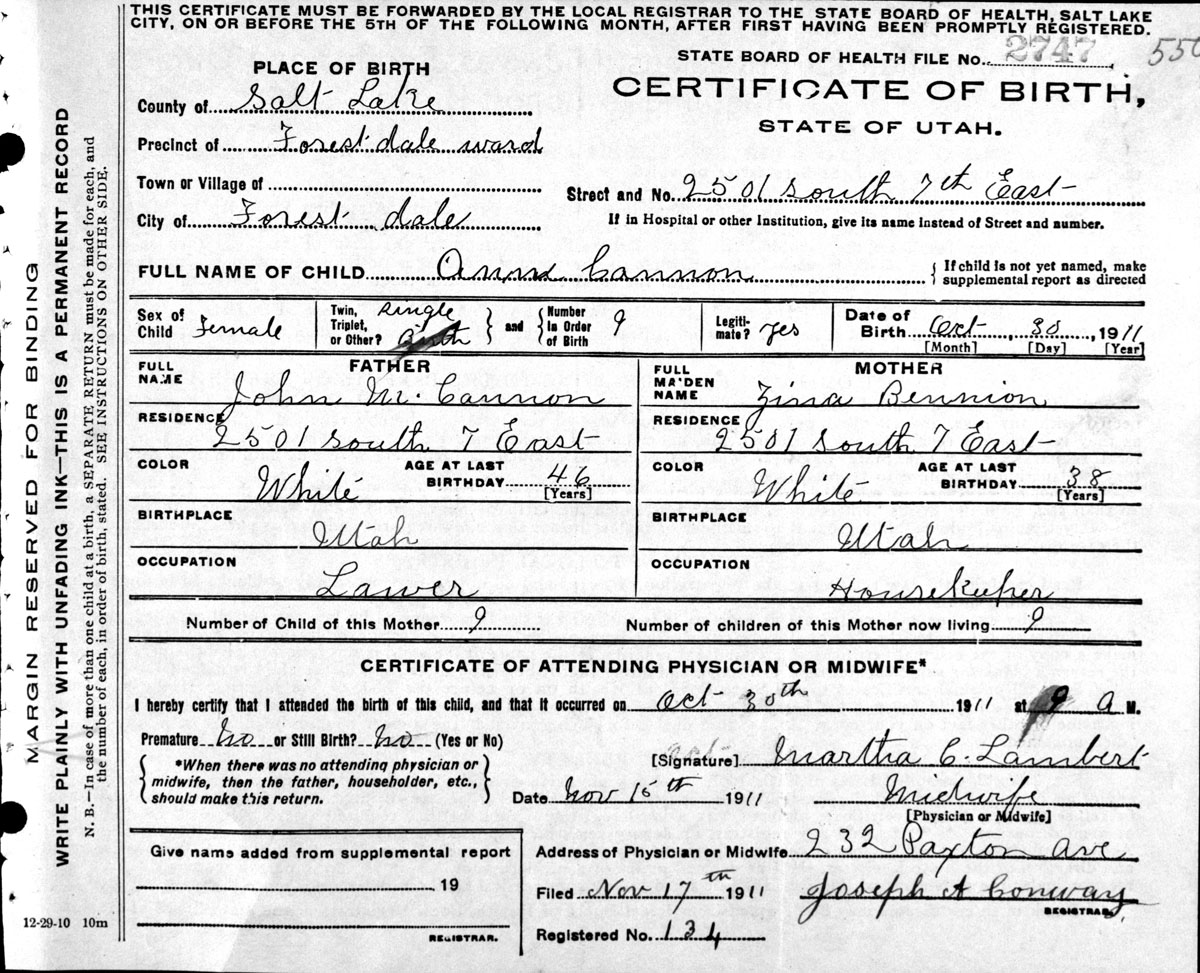 THIS CERTIFICATE MUST BE FORWARDED BY THE LOCAL REGISTRAR TO THE STATE BOARD OF HEALTH, SALT LAKE
CITY, ON OR BEFORE THE 5TH OF THE FOLLOWING MONTH, AFTER FIRST HAVING BEEN PROMPTLY REGISTERED.
STATE BOARD OF HEALTH FILE No. 2747 550
PLACE OF BIRTH
CERTIFICATE OF BIRTH,
STATE OF UTAH.
County of Salt Lake
Precinct of Forest dale ward
Town or Village of
Street and No. 2501 South 7th East
City of Forest dale
If in Hospital or other Institution, give its name instead of Street and number.
FULL NAME OF CHILD Cannon
If child is not yet named, make
supplemental report as directed
Sex of Child Female
Twin, Triplet, or Other? Single Birth
and Number in Order of Birth 9
Legitimate? Yes
Date of Birth Oct 30, 1911
[Month] [Day] [Year]
FATHER
FULL NAME John M. Cannon
RESIDENCE 2501 South 7 East
COLOR White AGE AT LAST BIRTHDAY 46
[Years]
BIRTHPLACE Utah
OCCUPATION Lawer
MOTHER
FULL MAIDEN NAME Zina Bennion
RESIDENCE 2501 South 7 East
COLOR White AGE AT LAST BIRTHDAY 38
[Years]
BIRTHPLACE Utah
OCCUPATION Housekeeper
Number of Child of this Mother 9 Number of children of this Mother now living 9
CERTIFICATE OF ATTENDING PHYSICIAN OR MIDWIFE*
I hereby certify that I attended the birth of this child, and that it occurred on Oct 30th 1911 at 9 A M.
Premature No or Still Birth? No (Yes or No)
*When there was no attending physician or
midwife, then the father, householder, etc.,
should make this return.
[Signature] Martha C. Lambert
Date Nov 15th 1911 Midwife
[Physician or Midwife]
Give name added from supplemental report
19
REGISTRAR.
Address of Physician or Midwife 232 Paxton Ave
Filed Nov 17th 1911 Joseph A Conway
REGISTRAR.
Registered No. 134
12-29-10 10m
MARGIN RESERVED FOR BINDING
WRITE PLAINLY WITH UNFADING INK—THIS IS A PERMANENT RECORD
N. B.—In case of more than one child at a birth, a SEPARATE RETURN must be made for each, and
the number of each, in order of birth, stated. SEE INSTRUCTIONS ON OTHER SIDE.